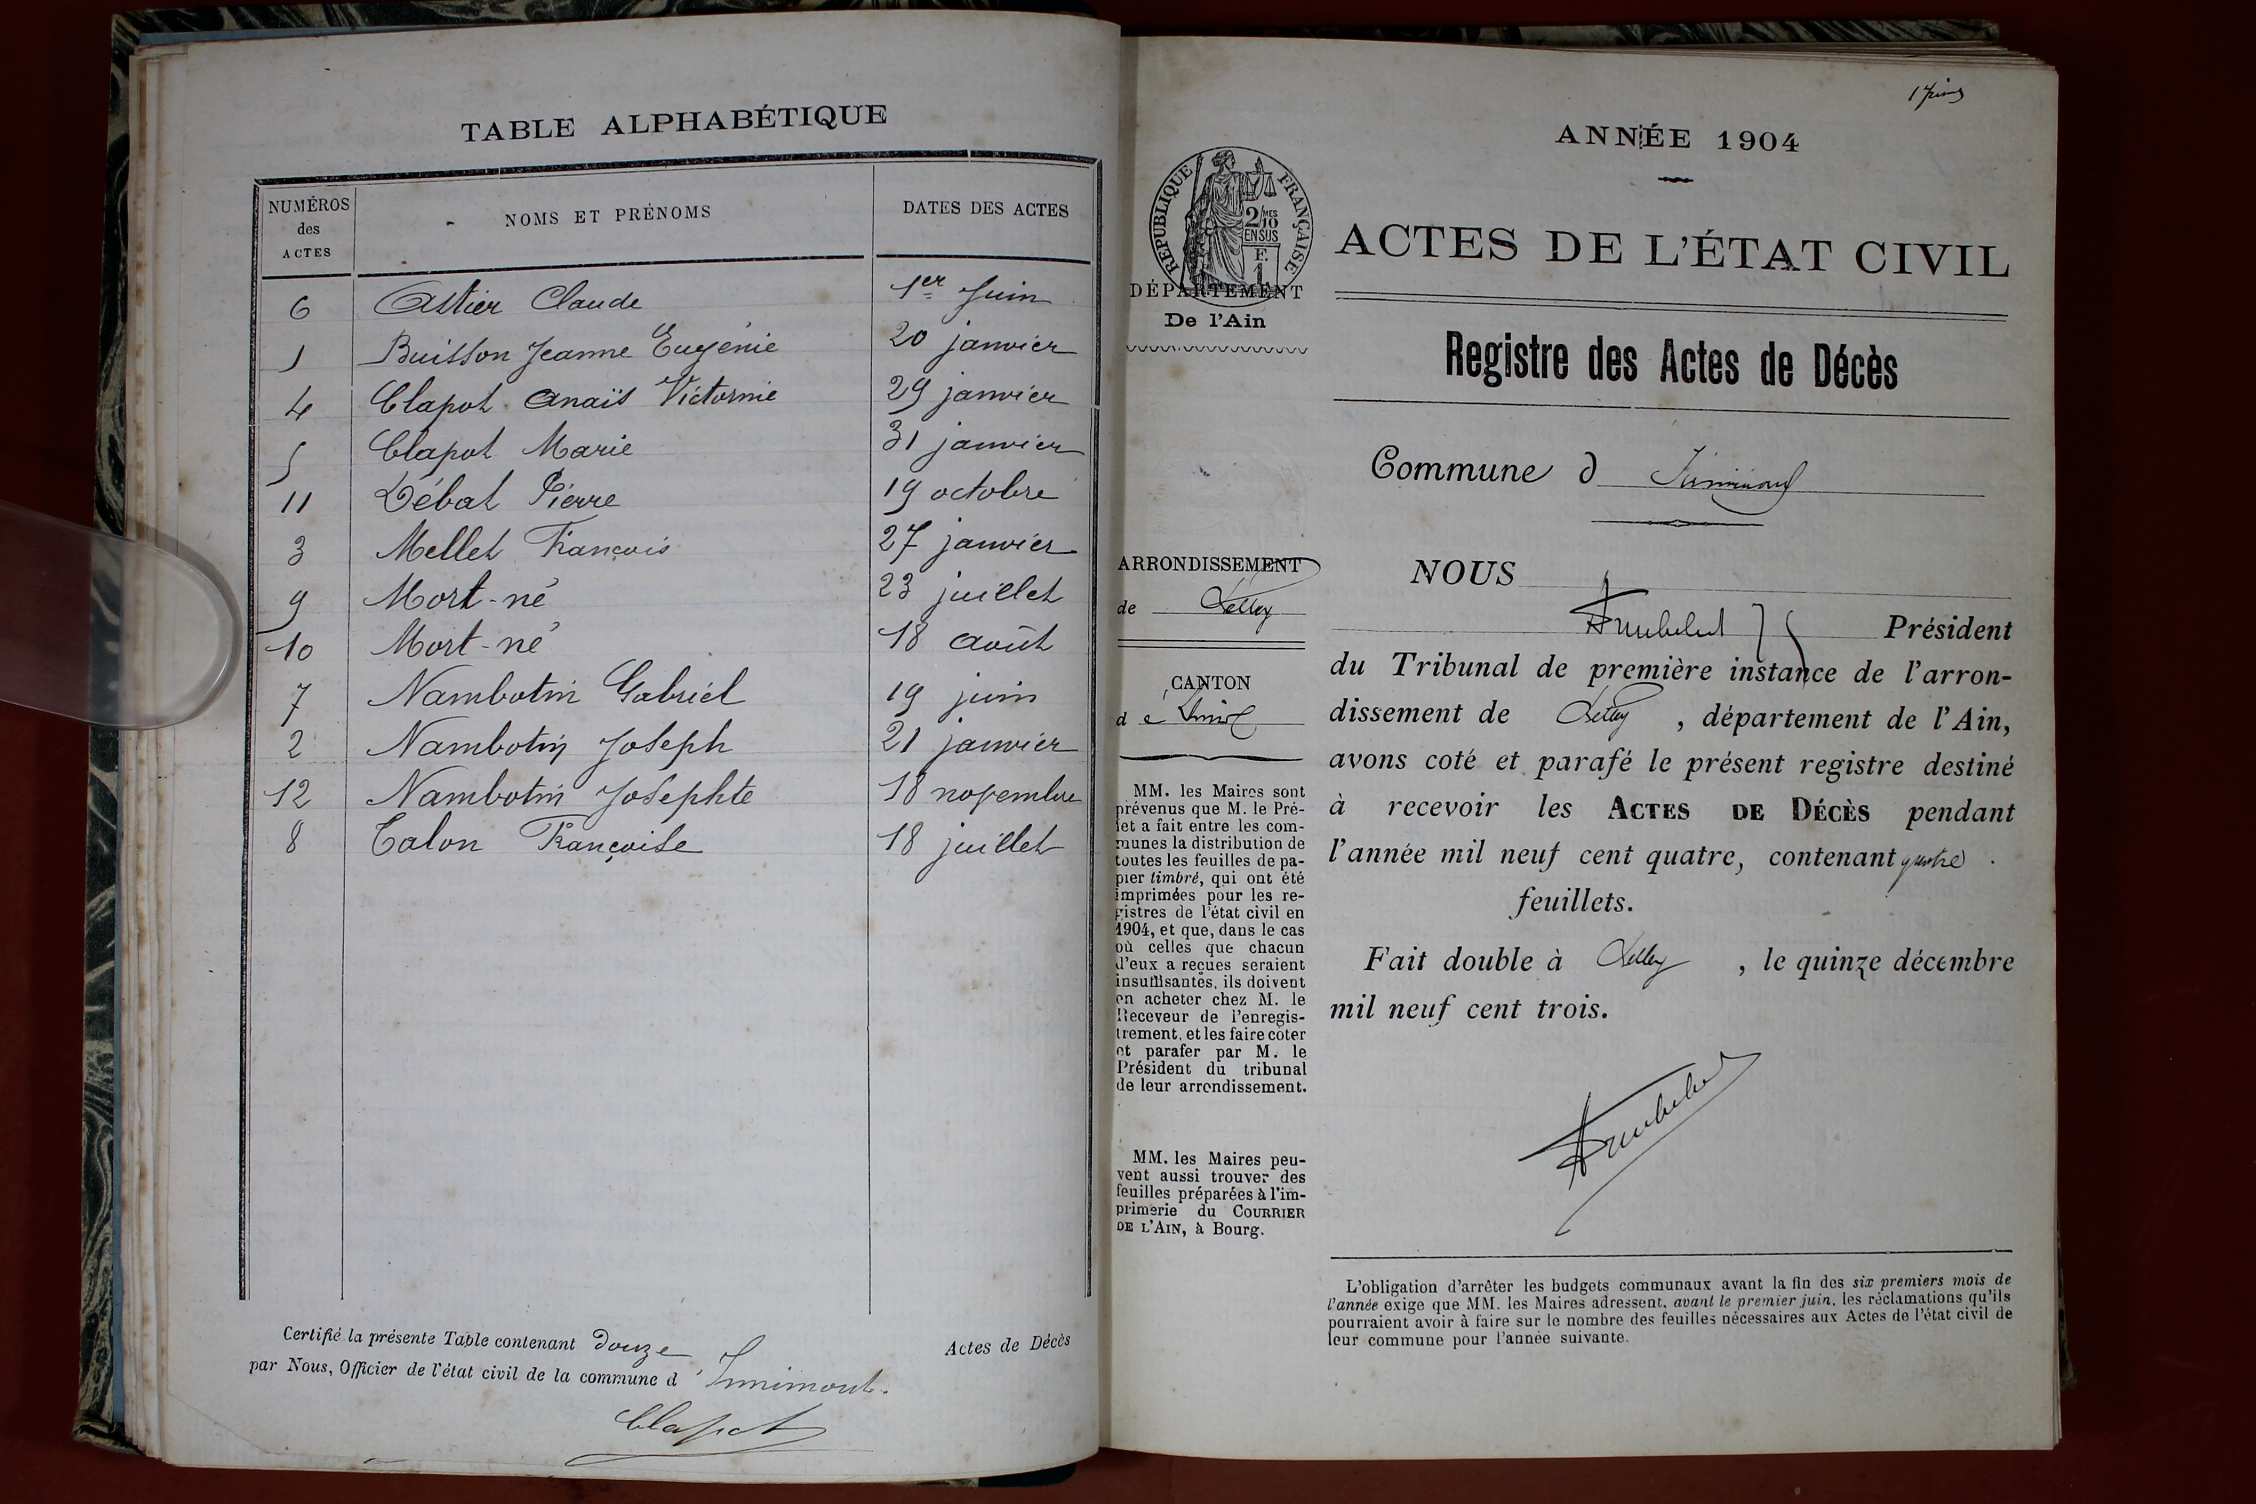 TABLE ALPHABÉTIQUE
NUMÉROS des ACTES NOMS ET PRÉNOMS DATES DES ACTES
6 Astier Claude 1er Juin
1 Buisson Jeanne Eugénie 20 janvier
4 Clapot Anaïs Victorine 29 janvier
5 Clapot Marie 31 janvier
11 Débat Pierre 19 octobre
3 Mellet François 27 janvier
9 Mort-né 23 juillet
10 Mort-né 18 août
7 Nambotin Gabriel 19 juin
2 Nambotin Joseph 21 janvier
12 Nambotin Josephte 18 novembre
8 Talon Françoise 18 juillet
Certifié la présente Table contenant douze Actes de Décès
par Nous, Officier de l'état civil de la commune d'Innimont.
Clapot
ANNÉE 1904
RÉPUBLIQUE FRANÇAISE
2/10 MES
EN SUS
F.
1
DÉPARTEMENT
De l'Ain
ARRONDISSEMENT
de Belley
CANTON
de
MM. les Maires sont
prévenus que M. le Pré-
fet a fait entre les com-
munes la distribution de
toutes les feuilles de pa-
pier timbré, qui ont été
imprimées pour les re-
gistres de l'état civil en
1904, et que, dans le cas
où celles que chacun
d'eux a reçues seraient
insuffisantes, ils doivent
en acheter chez M. le
Receveur de l'enregis-
trement, et les faire coter
et parafer par M. le
Président du tribunal
de leur arrondissement.
MM. les Maires peu-
vent aussi trouver des
feuilles préparées à l'im-
primerie du COURRIER
DE L'AIN, à Bourg.
ACTES DE L'ÉTAT CIVIL
Registre des Actes de Décès
Commune d Innimont
NOUS
Président
du Tribunal de première instance de l'arron-
dissement de Belley, département de l'Ain,
avons coté et parafé le présent registre destiné
à recevoir les ACTES DE DÉCÈS pendant
l'année mil neuf cent quatre, contenant quatre
feuillets.
Fait double à Belley, le quinze décembre
mil neuf cent trois.
L'obligation d'arrêter les budgets communaux avant la fin des six premiers mois de
l'année exige que MM. les Maires adressent, avant le premier juin, les réclamations qu'ils
pourraient avoir à faire sur le nombre des feuilles nécessaires aux Actes de l'état civil de
leur commune pour l'année suivante.